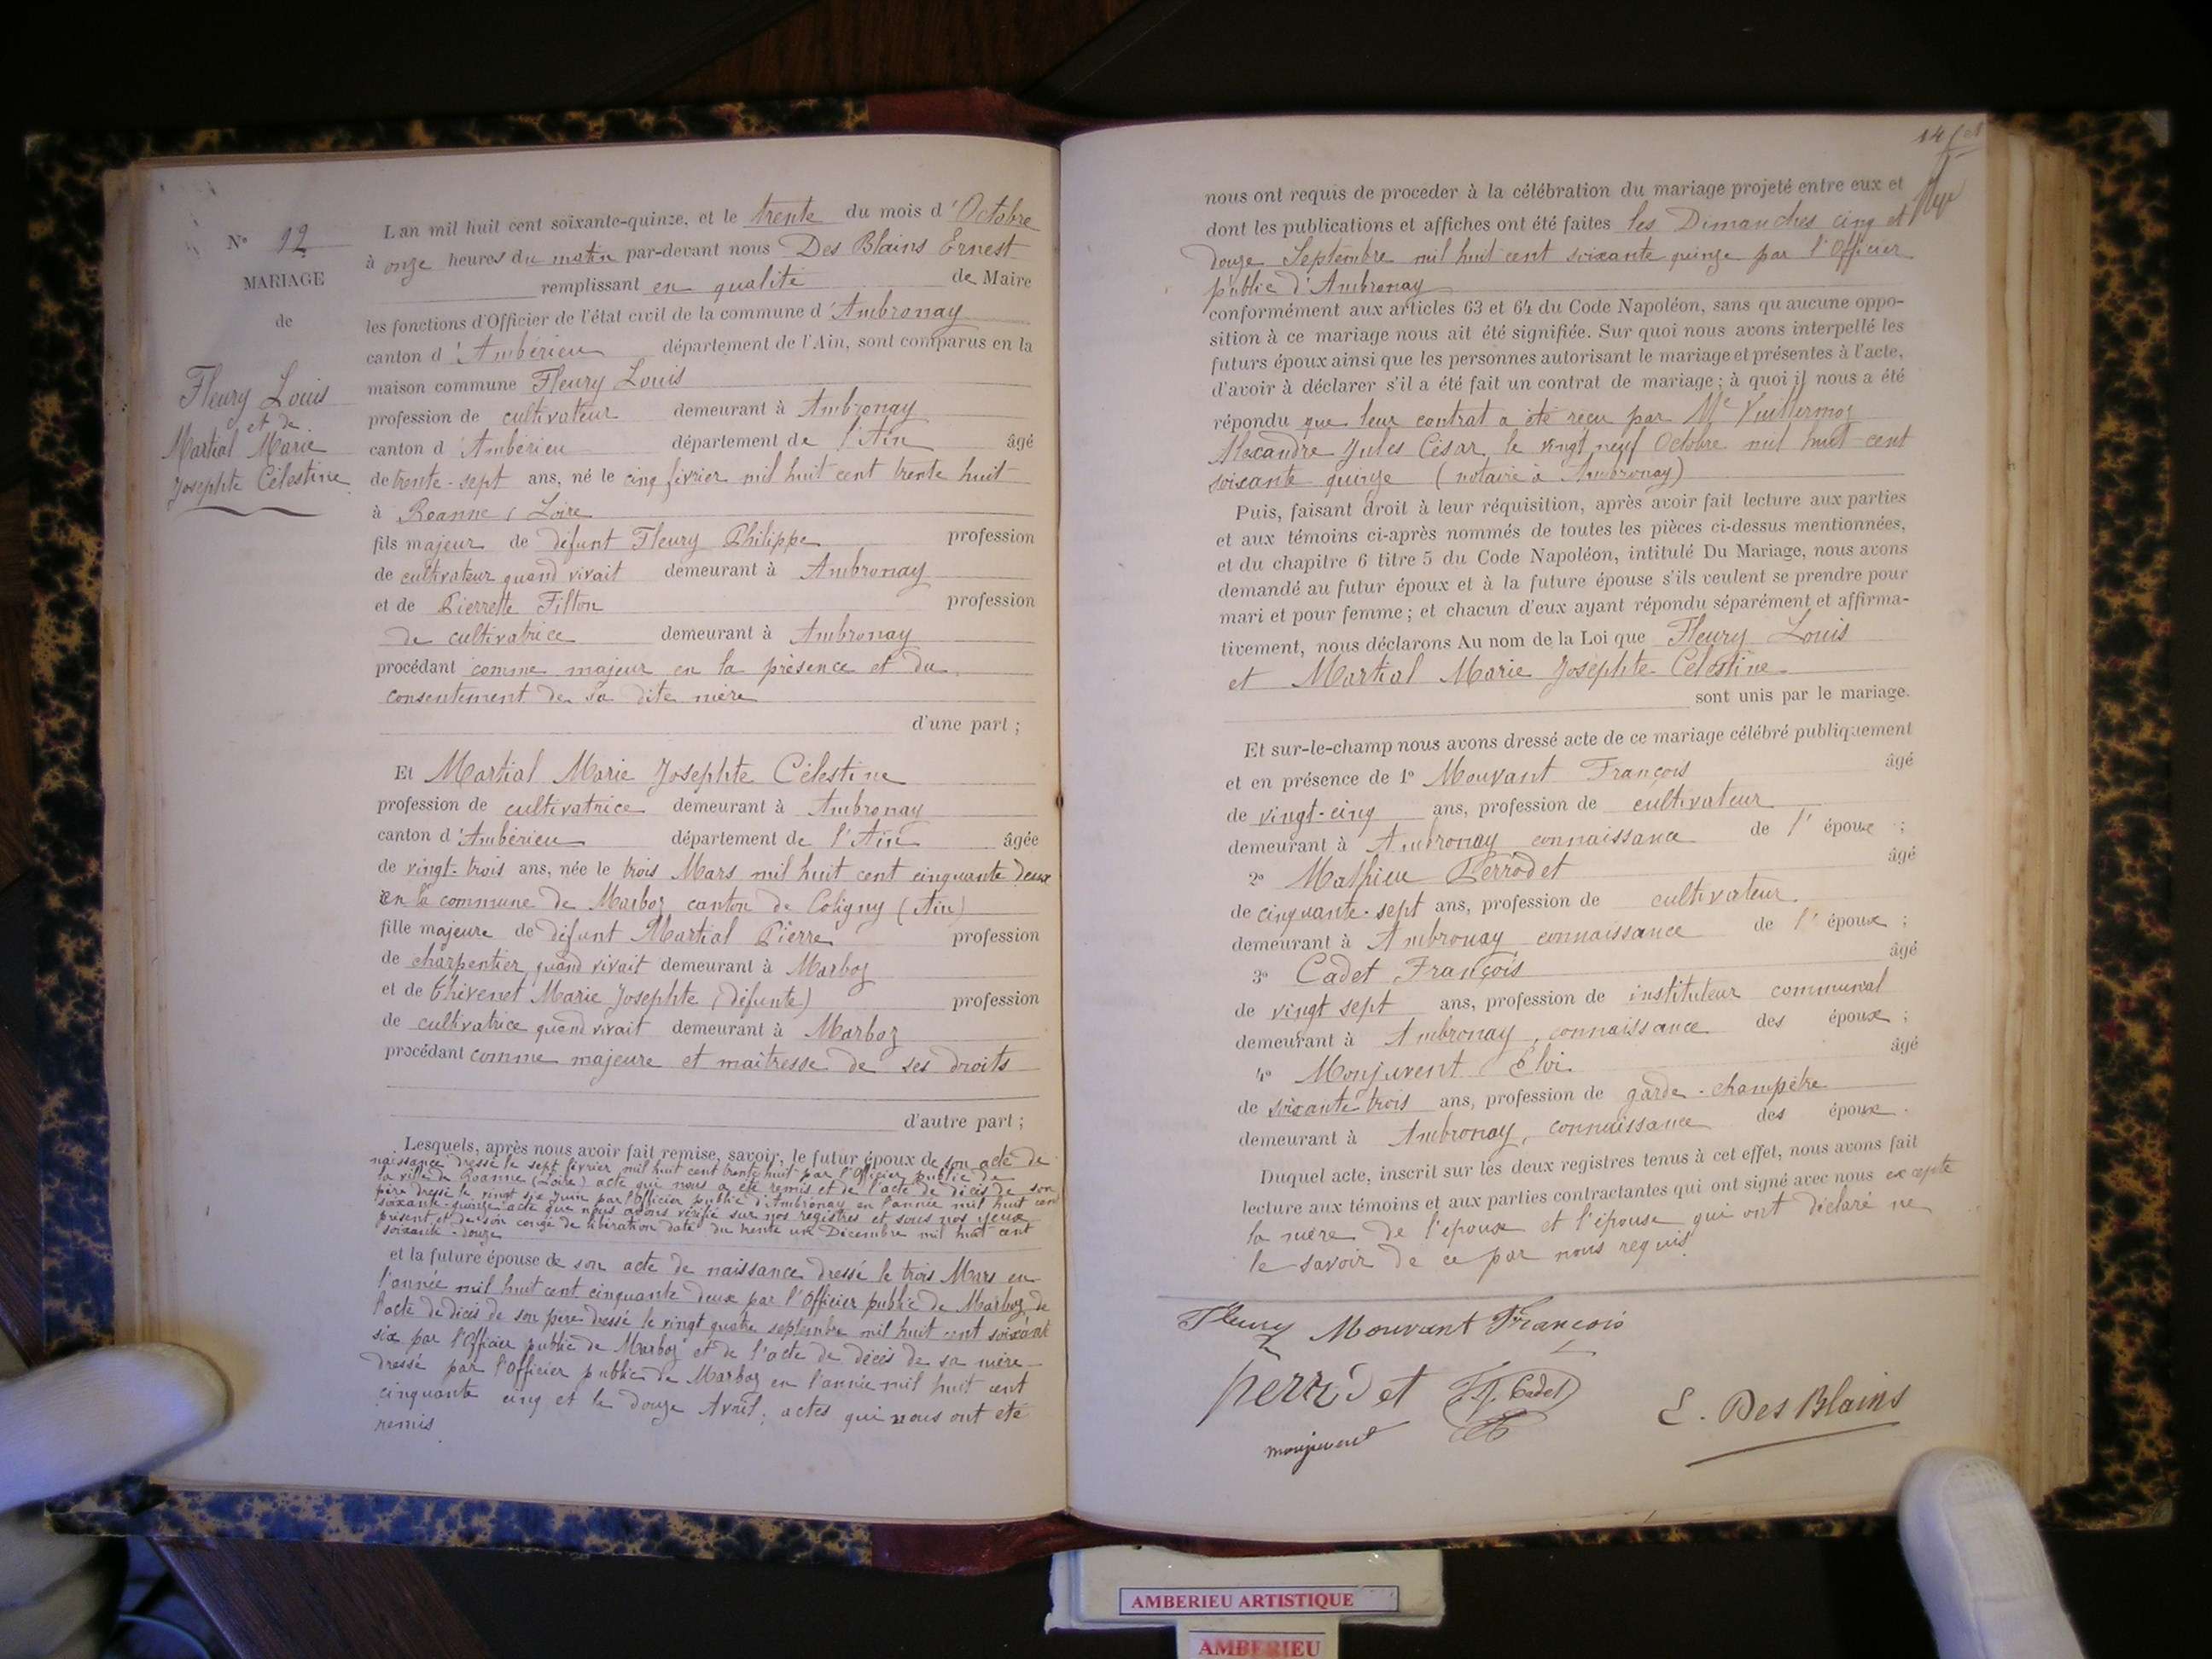 N° 12
MARIAGE
de
Fleury Louis
et de
Martial Marie
Josephte Célestine
L'an mil huit cent soixante-quinze, et le trente du mois d'Octobre
à onze heures du matin par-devant nous Des Blains Ernest
remplissant en qualité de Maire
les fonctions d'Officier de l'état civil de la commune d'Ambronay
canton d'Ambérieu département de l'Ain, sont comparus en la
maison commune Fleury Louis
profession de cultivateur demeurant à Ambronay
canton d'Ambérieu département de l'Ain âgé
de trente-sept ans, né le cinq février mil huit cent trente huit
à Roanne, Loire
fils majeur de défunt Fleury Philippe profession
de cultivateur quand vivait demeurant à Ambronay
et de Pierrette Filton profession
de cultivatrice demeurant à Ambronay
procédant comme majeur en la présence et du
consentement de sa dite mère
d'une part ;
Et Martial Marie Josephte Célestine
profession de cultivatrice demeurant à Ambronay
canton d'Ambérieu département de l'Ain âgée
de vingt-trois ans, née le trois Mars mil huit cent cinquante deux
en la commune de Marboz canton de Coligny (Ain)
fille majeure de défunt Martial Pierre profession
de charpentier quand vivait demeurant à Marboz
et de Thévenet Marie Josephte (défunte) profession
de cultivatrice quand vivait demeurant à Marboz
procédant comme majeure et maîtresse de ses droits
d'autre part ;
Lesquels, après nous avoir fait remise, savoir, le futur époux de son acte de
naissance dressé le sept février mil huit cent trente huit par l'Officier public de
la ville de Roanne (Loire) acte qui nous a été remis et de l'acte de décès de son
père dressé le vingt six Juin par l'Officier public d'Ambronay en l'année mil huit cent
soixante-quinze acte que nous avons vérifié sur nos registres et sous nos yeux
présent, et de son congé de libération daté du trente un Décembre mil huit cent
soixante-douze
et la future épouse de son acte de naissance dressé le trois Mars en
l'année mil huit cent cinquante deux par l'Officier public de Marboz, de
l'acte de décès de son père dressé le vingt quatre septembre mil huit cent soixante
six par l'Officier public de Marboz et de l'acte de décès de sa mère
dressé par l'Officier public de Marboz en l'année mil huit cent
cinquante cinq et le douze Avril ; actes qui nous ont été
remis
14
nous ont requis de proceder à la célébration du mariage projeté entre eux et
dont les publications et affiches ont été faites les Dimanches cinq et
douze Septembre mil huit cent soixante quinze par l'Officier
public d'Ambronay
conformément aux articles 63 et 64 du Code Napoléon, sans qu'aucune oppo-
sition à ce mariage nous ait été signifiée. Sur quoi nous avons interpellé les
futurs époux ainsi que les personnes autorisant le mariage et présentes à l'acte,
d'avoir à déclarer s'il a été fait un contrat de mariage ; à quoi il nous a été
répondu que leur contrat a été reçu par Me Vuillermoz
Alexandre Jules César, le vingt neuf Octobre mil huit cent
soixante quinze (notaire à Ambronay)
Puis, faisant droit à leur réquisition, après avoir fait lecture aux parties
et aux témoins ci-après nommés de toutes les pièces ci-dessus mentionnées,
et du chapitre 6 titre 5 du Code Napoléon, intitulé Du Mariage, nous avons
demandé au futur époux et à la future épouse s'ils veulent se prendre pour
mari et pour femme ; et chacun d'eux ayant répondu séparément et affirma-
tivement, nous déclarons Au nom de la Loi que Fleury Louis
et Martial Marie Josephte Célestine
sont unis par le mariage.
Et sur-le-champ nous avons dressé acte de ce mariage célébré publiquement
et en présence de 1° Mouvant François âgé
de vingt-cinq ans, profession de cultivateur
demeurant à Ambronay connaissance de l'époux ;
2° Mathieu Perrodet âgé
de cinquante-sept ans, profession de cultivateur
demeurant à Ambronay connaissance de l'époux ;
3° Cadet François âgé
de vingt sept ans, profession de instituteur communal
demeurant à Ambronay, connaissance des époux ;
4° Monjuvent Eloi âgé
de soixante trois ans, profession de garde-champêtre
demeurant à Ambronay, connaissance des époux.
Duquel acte, inscrit sur les deux registres tenus à cet effet, nous avons fait
lecture aux témoins et aux parties contractantes qui ont signé avec nous excepté
la mère de l'époux et l'épouse qui ont déclaré ne
le savoir de ce par nous requis
Fleury Mouvant François
perrodet F. Cadet
monjuvent E. Des Blains
AMBERIEU ARTISTIQUE
AMBERIEU